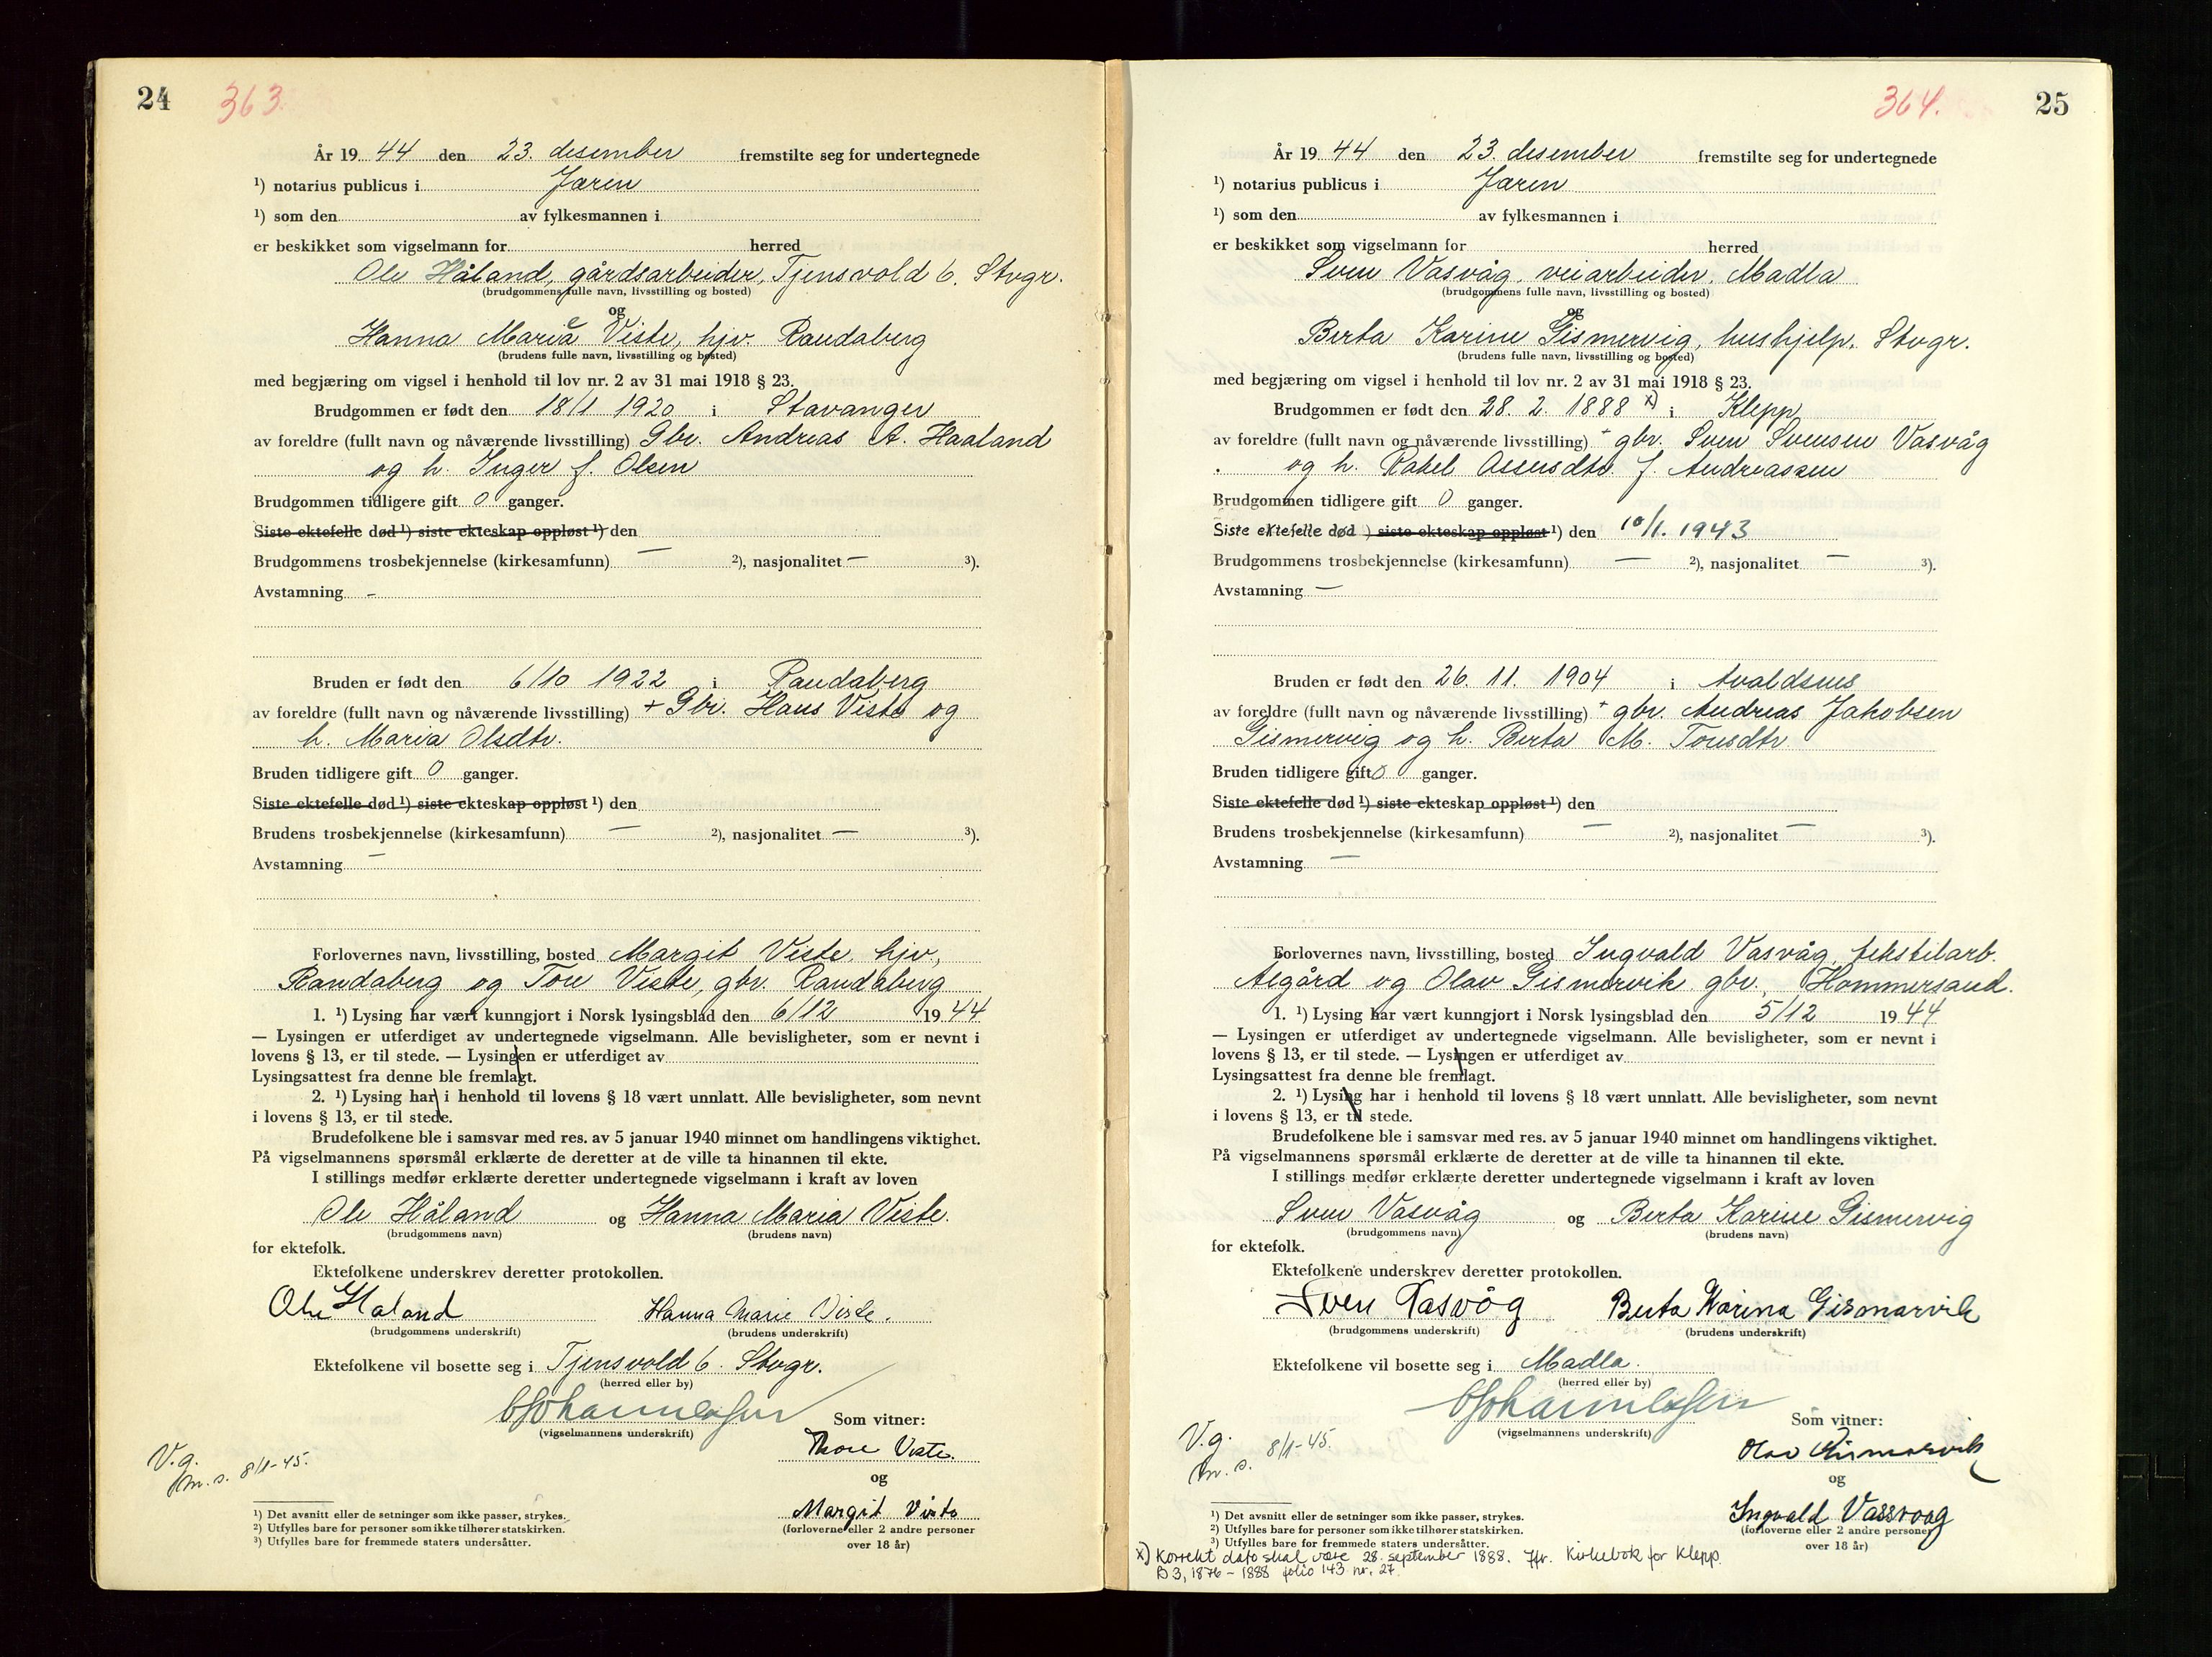 24 363.
År 19 44 den 23. desember fremstilte seg for undertegnede
¹) notarius publicus i Jæren
¹) som den av fylkesmannen i
er beskikket som vigselmann for herred
Ole Håland, gårdsarbeider, Tjensvold 6. Stvgr.
(brudgommens fulle navn, livsstilling og bosted)
og
Hanna Marie Viste, hjv. Randaberg
(brudens fulle navn, livsstilling og bosted)
med begjæring om vigsel i henhold til lov nr. 2 av 31 mai 1918 § 23.
Brudgommen er født den 18/1 1920 i Stavanger
av foreldre (fullt navn og nåværende livsstilling) Gbr. Andreas A. Haaland
og h. Inger f. Olsen
Brudgommen tidligere gift 0 ganger.
Siste ektefelle død ¹) siste ekteskap oppløst ¹) den
Brudgommens trosbekjennelse (kirkesamfunn) — ²), nasjonalitet — ³).
Avstamning —
Bruden er født den 6/10 1922 i Randaberg
av foreldre (fullt navn og nåværende livsstilling) + Gbr. Hans Viste og
h. Maria Olsdtr.
Bruden tidligere gift 0 ganger.
Siste ektefelle død ¹) siste ekteskap oppløst ¹) den
Brudens trosbekjennelse (kirkesamfunn) — ²), nasjonalitet — ³).
Avstamning —
Forlovernes navn, livsstilling, bosted Margit Viste hjv,
Randaberg og Tore Viste, gbr. Randaberg
1. ¹) Lysing har vært kunngjort i Norsk lysingsblad den 6/12 19 44
— Lysingen er utferdiget av undertegnede vigselmann. Alle bevisligheter, som er nevnt i
lovens § 13, er til stede. — Lysingen er utferdiget av
Lysingsattest fra denne ble fremlagt.
2. ¹) Lysing har i henhold til lovens § 18 vært unnlatt. Alle bevisligheter, som nevnt
i lovens § 13, er til stede.
Brudefolkene ble i samsvar med res. av 5 januar 1940 minnet om handlingens viktighet.
På vigselmannens spørsmål erklærte de deretter at de ville ta hinannen til ekte.
I stillings medfør erklærte deretter undertegnede vigselmann i kraft av loven
Ole Håland og Hanna Maria Viste.
(brudgommens navn) (brudens navn)
for ektefolk.
Ektefolkene underskrev deretter protokollen.
Ole Haland Hanna Marie Viste.
(brudgommens underskrift) (brudens underskrift)
Ektefolkene vil bosette seg i Tjensvold 6. Stvgr.
(herred eller by)
Johannessen
(vigselmannens underskrift)
Som vitner:
Thore Viste.
og
Margit Viste
(forloverne eller 2 andre personer
over 18 år)
V.g.
m.s. 8/1-45.
¹) Det avsnitt eller de setninger som ikke passer, strykes.
²) Utfylles bare for personer som ikke tilhører statskirken.
³) Utfylles bare for fremmede staters undersåtter.
364. 25
År 19 44 den 23. desember fremstilte seg for undertegnede
¹) notarius publicus i Jæren
¹) som den av fylkesmannen i
er beskikket som vigselmann for herred
Sven Vasvåg, veiarbeider, Madla
(brudgommens fulle navn, livsstilling og bosted)
og
Berta Karine Gismervig, hushjelp. Stvgr.
(brudens fulle navn, livsstilling og bosted)
med begjæring om vigsel i henhold til lov nr. 2 av 31 mai 1918 § 23.
Brudgommen er født den 28. 2. 1888 x) i Klepp
av foreldre (fullt navn og nåværende livsstilling) + gbr. Sven Svensen Vasvåg
og h. Rakel Assensdtr. f. Andreassen
Brudgommen tidligere gift 0 ganger.
Siste ektefelle død ) siste ekteskap oppløst ¹) den 10/1. 1943
Brudgommens trosbekjennelse (kirkesamfunn) — ²), nasjonalitet — ³).
Avstamning —
Bruden er født den 26. 11. 1904 i Avaldsnes
av foreldre (fullt navn og nåværende livsstilling) + gbr. Andreas Jakobsen
Gismervig og h. Berta M. Tonsdtr
Bruden tidligere gift 0 ganger.
Siste ektefelle død ¹) siste ekteskap oppløst ¹) den
Brudens trosbekjennelse (kirkesamfunn) — ²), nasjonalitet — ³).
Avstamning —
Forlovernes navn, livsstilling, bosted Ingvald Vasvåg, tekstilarb.
Algård og Olav Gismervik gbr., Hommersand.
1. ¹) Lysing har vært kunngjort i Norsk lysingsblad den 5/12 19 44
— Lysingen er utferdiget av undertegnede vigselmann. Alle bevisligheter, som er nevnt i
lovens § 13, er til stede. — Lysingen er utferdiget av
Lysingsattest fra denne ble fremlagt.
2. ¹) Lysing har i henhold til lovens § 18 vært unnlatt. Alle bevisligheter, som nevnt
i lovens § 13, er til stede.
Brudefolkene ble i samsvar med res. av 5 januar 1940 minnet om handlingens viktighet.
På vigselmannens spørsmål erklærte de deretter at de ville ta hinannen til ekte.
I stillings medfør erklærte deretter undertegnede vigselmann i kraft av loven
Sven Vasvåg og Berta Karine Gismervig
(brudgommens navn) (brudens navn)
for ektefolk.
Ektefolkene underskrev deretter protokollen.
Sven Vasvåg Berta Karina Gismarvik
(brudgommens underskrift) (brudens underskrift)
Ektefolkene vil bosette seg i Madla.
(herred eller by)
Johannessen
(vigselmannens underskrift)
Som vitner:
Olav Gismarvik
og
Ingvald Vassvaag
(forloverne eller 2 andre personer
over 18 år)
V.g.
m.s. 8/1-45.
¹) Det avsnitt eller de setninger som ikke passer, strykes.
²) Utfylles bare for personer som ikke tilhører statskirken.
³) Utfylles bare for fremmede staters undersåtter.
x) Korrekt dato skal være 28. september 1888. Jfr. Kirkebok for Klepp.
B 3, 1876 - 1888 folio 143 nr. 27.